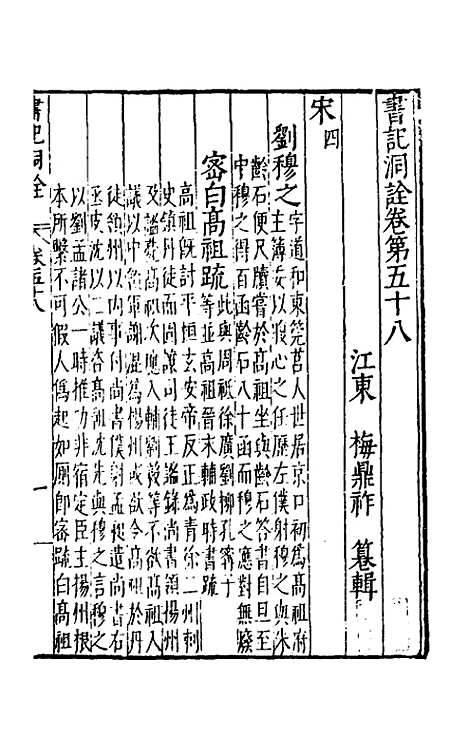 書記洞詮卷第五十八
江東 梅鼎祚 纂輯
宋四
劉穆之
字道和東莞莒人世居京口初為高祖府
主簿委以腹心之任歷左僕射穆之與朱
齡石便尺牘嘗於高祖坐與齡石答書自旦至
中穆之得百函齡石八十函而穆之應對無廢
密白高祖疏
此與周祗徐廣劉柳孔寗子
等並高祖晉末輔政時書疏
高祖旣討平桓玄安帝反正為青徐二州刺
史領丹徒而同謀司徒王謐錄尚書領揚州
及謐薨高祖次應入輔劉毅等不欲高祖入
議以中領軍謝混為揚州或欲令高祖於丹
徒領州以內事付尚書僕射孟昶遣尚書右
丞皮沈以二議咨高祖沈先與穆之言穆之
以劉孟諸公一時推功非宿定臣主揚州根
本所繫不可假人爲起如厠即密疏白高祖
書記洞詮 卷五十八 一